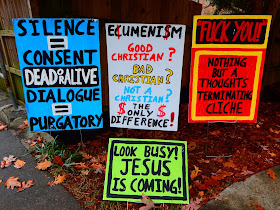 SILENCE
=
CONSENT
DEAD=ALIVE
DIALOGUE
=
PURGATORY
E¢UMENI$M
GOOD
CHRISTIAN?
BAD
CHRISTIAN?
NOT A
CHRISTIAN?
$ THE ONLY $
DIFFERENCE!
FUCK YOU!
NOTHING
BUT A
THOUGHTS
TERMINATING
CLICHE
LOOK BUSY!
JESUS
IS COMING!